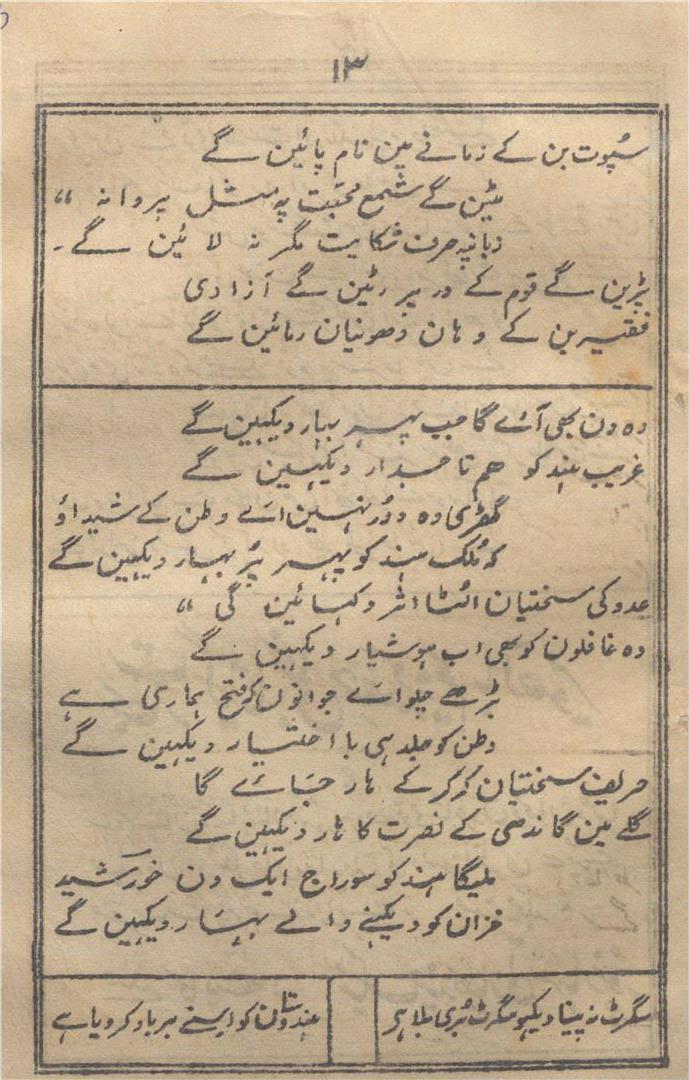 ۱۳
سُپوت بن کے زمانے مین نام پائین گے
مٹین گے شمع محبّت پہ مثل پروانہ „
زبانپہ حرف شکایت مگر نہ لائین گے۔
پڑین گے قوم کے در پر رٹین گے آزادی
فقیر بن کے وہان دھونیان رمائین گے
وہ دن بھی آئے گا جب پہر بہار دیکہین گے
غریب ہند کو ہم تاجدار دیکہین گے
گھڑی وہ دور نہین اے وطن کے شیداؤ
کہ مُلک ہند کو پہر پُر بہار دیکہین گے
عدو کی سختیان الٹا اثر دکہائین گی „
وہ غافلون کو بھی اب ہوشیار دیکہین گے
بڑھے چلو اے جوانون کہ فتح ہماری ہے
وطن کو جلد ہی با اختیار دیکہین گے
حریف سختیان کرکر کے ہار جائے گا
گلے مین گاندھی کے نصرت کا ہار دیکہین گے
ملیگا ہند کو سوراج ایک دن خورشید
خزان کو دیکہنے والے بہار دیکہین گے
سگرٹ نہ پینا دیکہو سگرٹ بُری بلا ہر
ہندوستان کو اسنے برباد کر دیا ہے